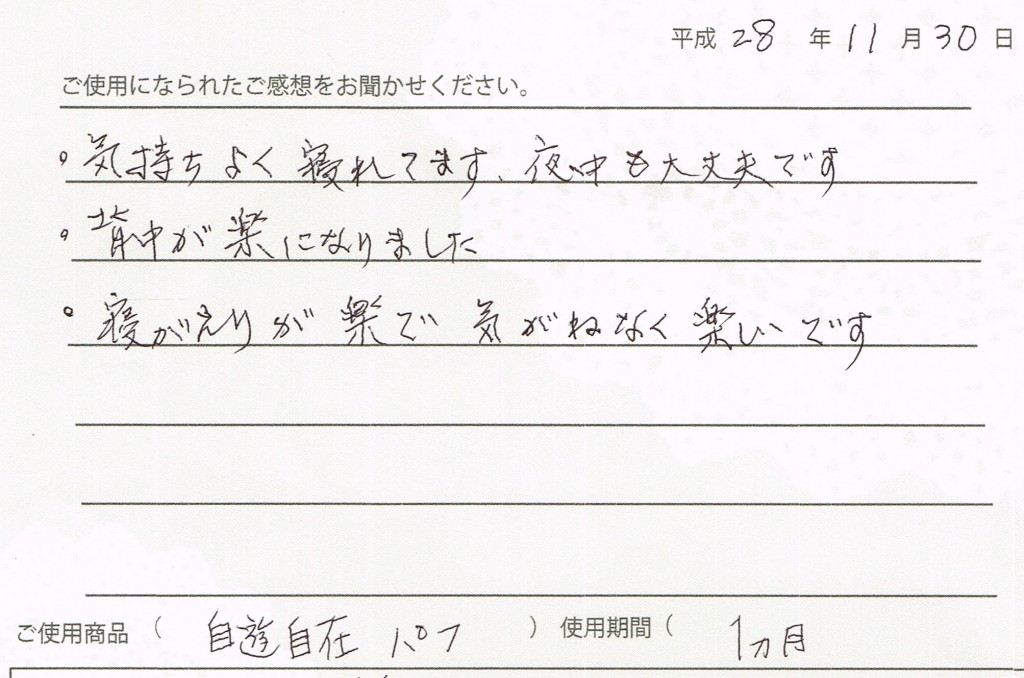 平成 28 年 11 月 30 日
ご使用になられたご感想をお聞かせください。
。気持ちよく寝れてます、夜中も大丈夫です
。背中が楽になりました
。寝がえりが楽で 気がねなく 楽しいです
ご使用商品 ( 自遊自在 パフ ) 使用期間 ( 1ヵ月